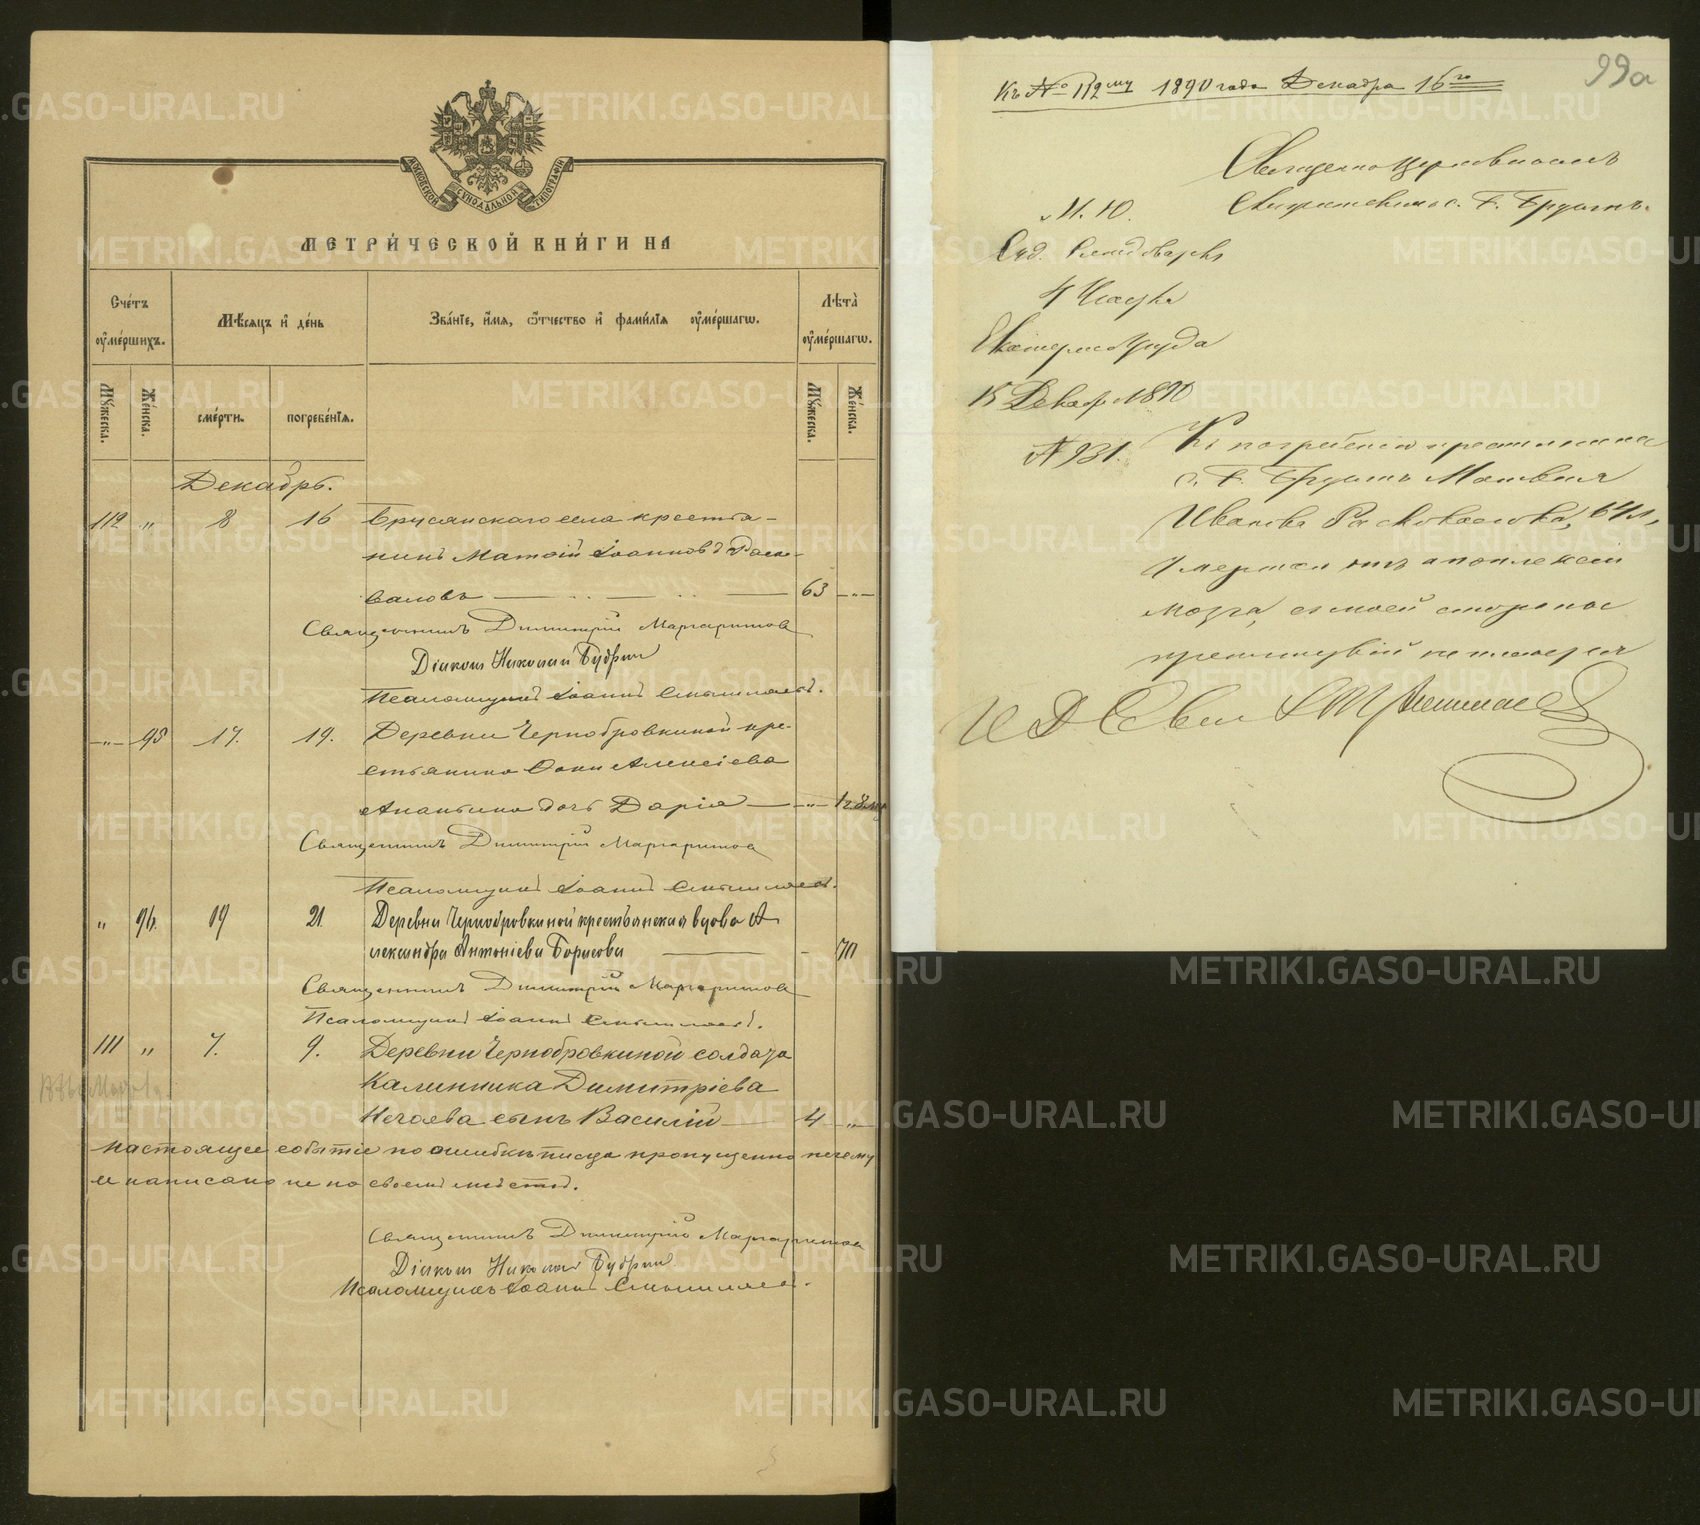 МОСКОВСКОЙ СѴНОДАЛЬНОЙ ТИПОГРАФІИ
МЕТРИ́ЧЕСКОЙ КНИ́ГИ НА
Сче́тъ ᲂу҆ме́ршихъ.
Мѣ́сяцъ и҆ де́нь
Зва́нїе, и҆́мя, ѻ҆́тчество и҆ фами́лїя ᲂу҆ме́ршагѡ.
Лѣта̀ ᲂу҆ме́ршагѡ.
Му́жеска.
Же́нска.
сме́рти.
погребе́нїя.
Му́жеска.
Же́нска.
Декабрь.
112 „ 8 16 Брусянскаго села крестья-
нинъ Матѳій Іоанновъ Раско-
валовъ — 63 — „ —
Священникъ Димитрій Маргаритовъ
Діаконъ Николай Будринъ
Псаломщикъ Іоаннъ
— „ — 95 17. 19. Деревни Чернобровкиной кре-
стьянина Ѳоки Алексіева
Ананьина дочь Дарія — „ —
Священникъ Димитрій Маргаритовъ
Псаломщикъ Іоаннъ
„ 96. 19 21. Деревни Чернобровкиной крестьянская вдова А-
лександра Антоніева Борисова — - 70
Священникъ Димитрій Маргаритовъ
Псаломщикъ Іоаннъ
111 „ 7. 9. Деревни Чернобровкиной солдата
Каллиника Димитріева
Нечаева сынъ Василій — 4 — „ —
Настоящее событіе по ошибкѣ писца пропущенно почему
и написано не на своемъ мѣстѣ.
Священникъ Димитрій Маргаритовъ
Діаконъ Николай Будринъ
Псаломщикъ Іоаннъ
99а
Къ № 112му 1890 года Декабря 16го
Священноцерковнослъ
с. Г. Брусянъ.
М. Ю.
Суд. Слѣдователь
4 Участка
Екатеринб. уѣзда
15 Декабр 1890
№ 931.
Къ погребенію крестьянина
с. Г. Брусянъ Матвѣя
Иванова Расковалова, 64 л.,
умершаго отъ апоплексіи
мозга, съ моей стороны
препятствій не имѣется
И Д
METRIKI.GASO-URAL.RU